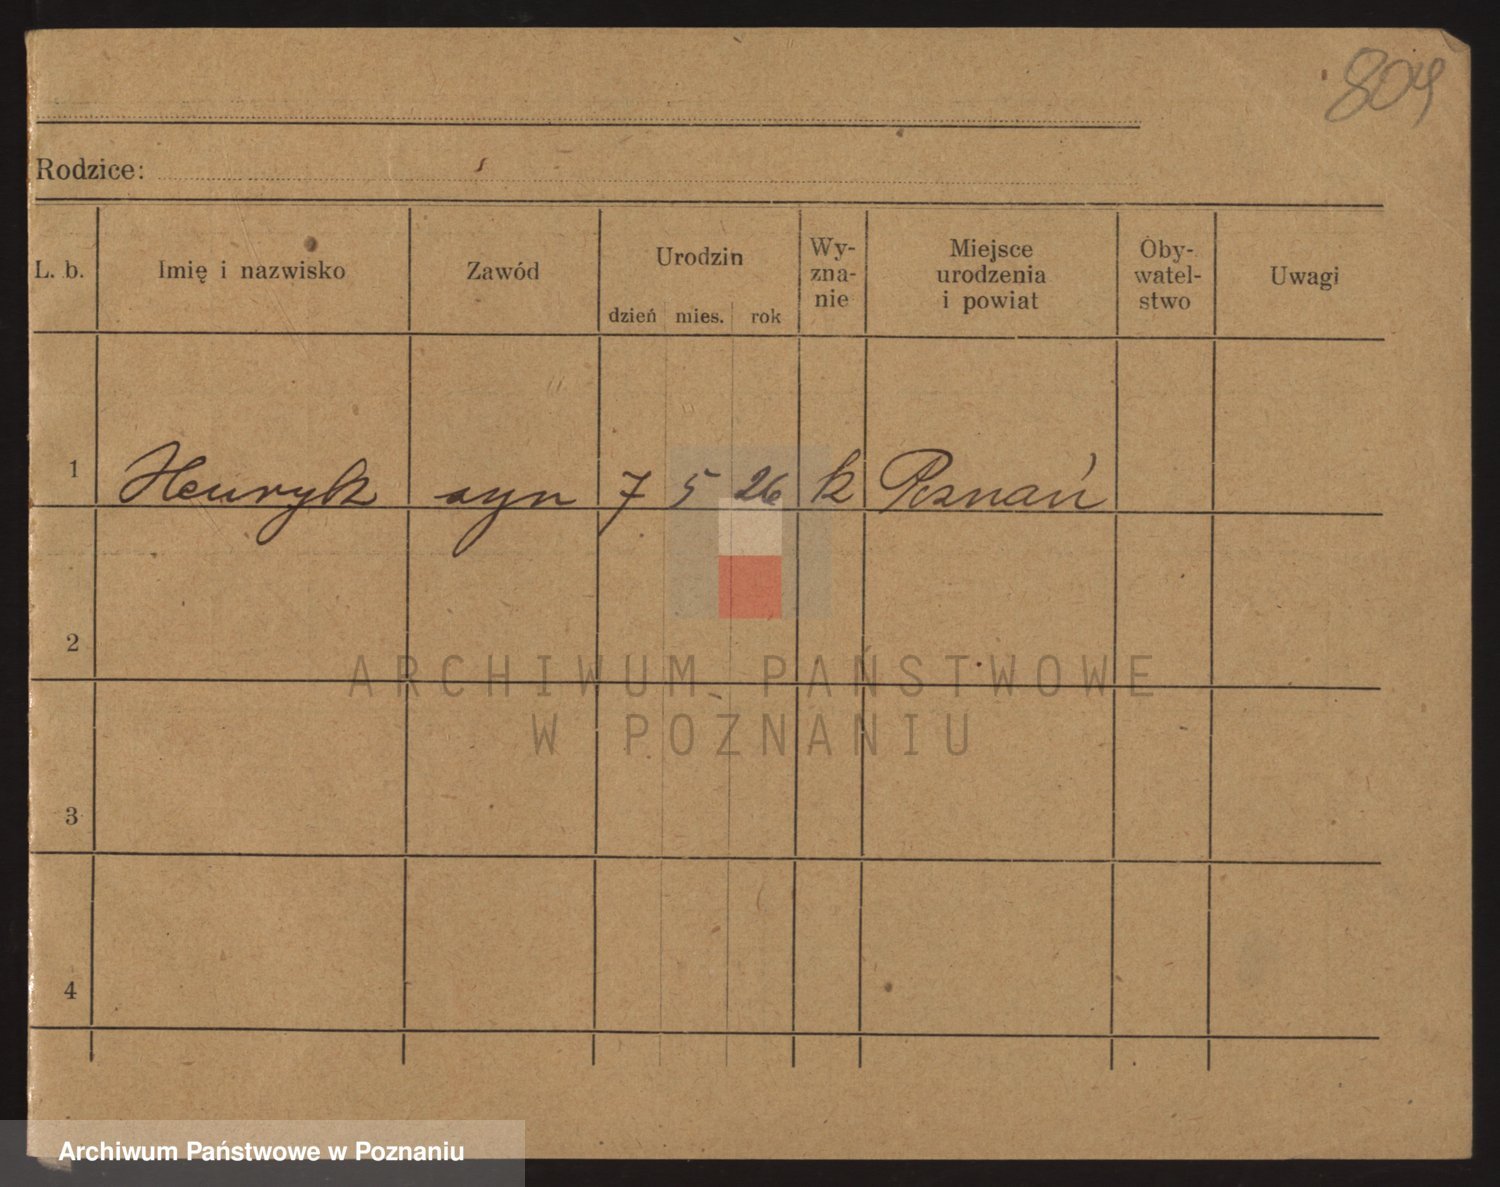 809
Rodzice:
L. b. Imię i nazwisko Zawód Urodzin dzień mies. rok Wy-zna-nie Miejsce urodzenia i powiat Oby-watel-stwo Uwagi
1 Henryk syn 7 5 26 k Poznań
2
ARCHIWUM PAŃSTWOWE
W POZNANIU
3
4
Archiwum Państwowe w Poznaniu